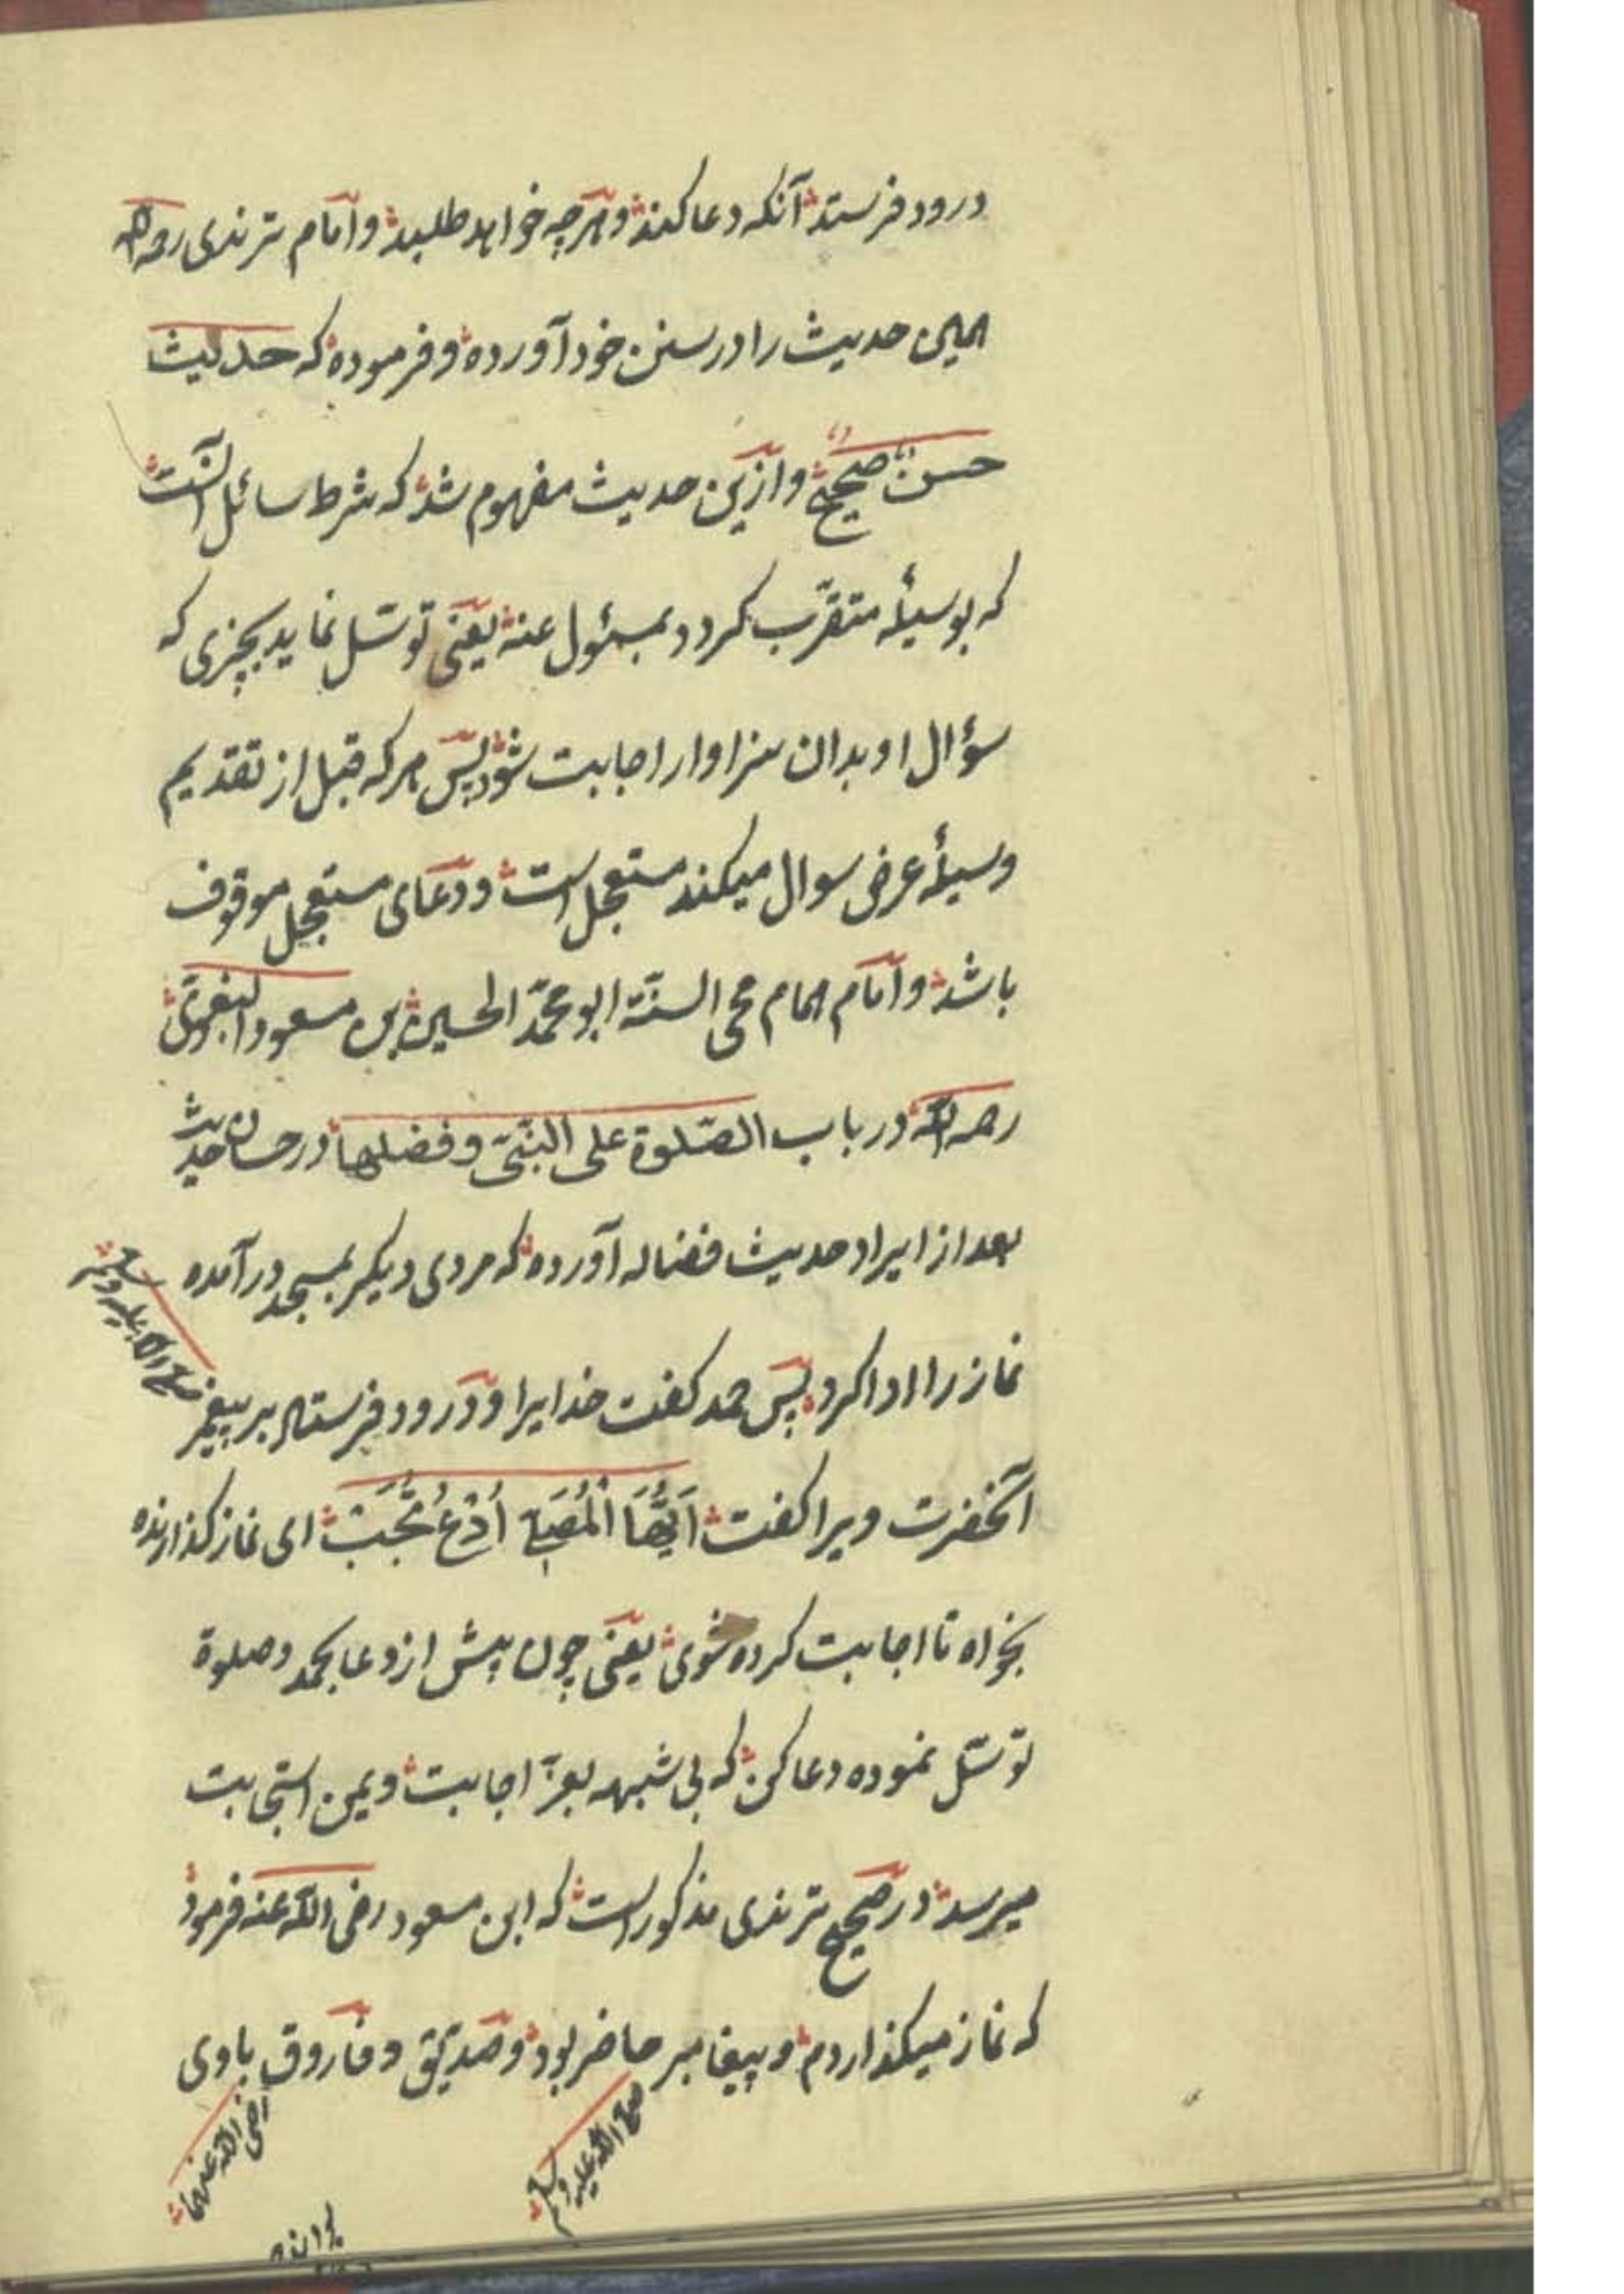 درود فرستد آنکه دعا کند و هرچه خواهد طلبد و امام ترمذی رحمه الله
همین حدیث را در سنن خود آورده و فرموده که حدیث
حسن صحیح و ازین حدیث مفهوم شد که شرط سائل آنست
که بوسیلهٔ متقرّب کردد بمسئول عنه یعنی توسّل نماید بچیزی که
سؤال او بدان سزاوار اجابت شود پس هر که قبل از تقدیم
وسیلهٔ عرض سوال میکند مستعجل است و دعای مستعجل موقوف
باشد و امام همام محی السنّة ابو محمّد الحسین بن مسعود البغوی
رحمه الله در باب الصّلوة علی النّبیّ و فضلها در حسان حدیث
بعد از ایراد حدیث فضاله آورده که مردی دیکر بمسجد درآمده
نماز را ادا کرد پس حمد کفت خدایرا و درود فرستاد بر پیغمبر
صلی الله علیه وسلم
آنحضرت ویرا کفت اَیُّهَا الْمُصَلِّی اُدْعُ تُجَبْ ای نماز کذارنده
بخواه تا اجابت کرده شوی یعنی چون پیش از دعا بحمد و صلوة
توسّل نموده دعا کن که بی شبهه بعزّ اجابت و یمن استجابت
میرسد در صحیح ترمذی مذکور است که ابن مسعود رضی الله عنه فرمود
که نماز میکذاردم و پیغامبر حاضر بود و صدیق و فاروق باوی
صلی الله علیه وسلم
رضی الله عنهما
بودند